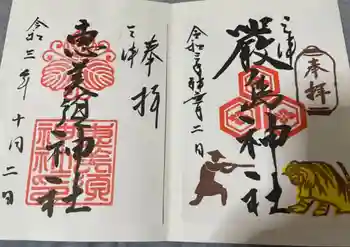 奉拝
三津
厳島神社
令和三年十月二日
奉拝
三津
恵美須神社
令和三年十月二日